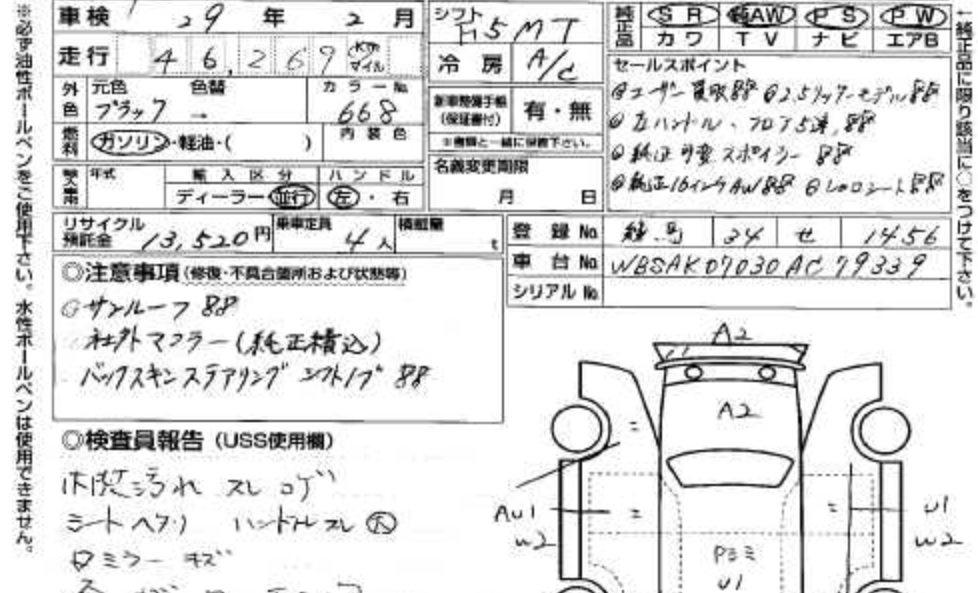 ※必ず油性ボールペンをご使用下さい。水性ボールペンは使用できません。
車検 29 年 2 月
走行 46,269 km マイル
外色 元色 色替 カラーNo.
ブラック → 668
燃料 ガソリン・軽油・( ) 内装色
輸入車 年式 輸入区分 ハンドル
ディーラー・並行 左・右
シフト F5MT
冷房 A/C
新車整備手帳(保証書付) 有・無
※書類と一緒に保管下さい。
名義変更期限
月 日
純正品 SR 純AW PS PW
カワ TV ナビ エアB
セールスポイント
◎ユーザー買取車 ◎2.5リッターモデル
◎左ハンドル、フロア5速
◎純正 スポイラー
◎純正16インチAW
←純正品に限り該当に○をつけて下さい。
リサイクル預託金 13,520円 乗車定員 4人 積載量 t
登録No. 練馬 34 せ 1456
車台No. WBSAK07030AC79339
シリアルNo.
◎注意事項(修復・不具合箇所および状態等)
サンルーフ
社外マフラー(純正積込)
バックスキンステアリング シフトノブ
◎検査員報告(USS使用欄)
内装汚れ スレ コゲ
シートヘタリ ハンドルスレ 大
ミラー キズ
A2
A2
AU1 U1
W2 W2
U1